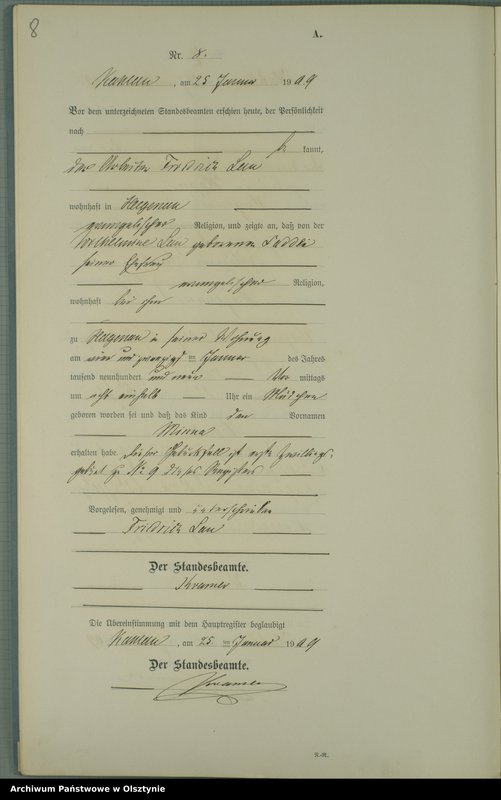 8
A.
Nr. 8.
, am 25 Januar 1909
Vor dem unterzeichneten Standesbeamten erschien heute, der Persönlichkeit
nach
be kannt,
der Arbeiter Friedrich Lau
wohnhaft in Hagenau
evangelischer Religion, und zeigte an, daß von der
Wilhelmine Lau geborenen
seiner Ehefrau
evangelischer Religion,
wohnhaft bei ihm
zu Hagenau in seiner Wohnung
am ein und zwanzigsten Januar des Jahres
tausend neunhundert und neun Vor mittags
um acht einhalb Uhr ein Mädchen
geboren worden sei und daß das Kind den Vornamen
Minna
erhalten habe. Dieser Geburtsfall ist erste Zwillings-
geburt zu No 9 dieses Registers
Vorgelesen, genehmigt und unterschrieben
Friedrich Lau
Der Standesbeamte.
Kramer
Die Übereinstimmung mit dem Hauptregister beglaubigt
, am 25 ten Januar 1909
Der Standesbeamte.
Kramer
Archiwum Państwowe w Olsztynie